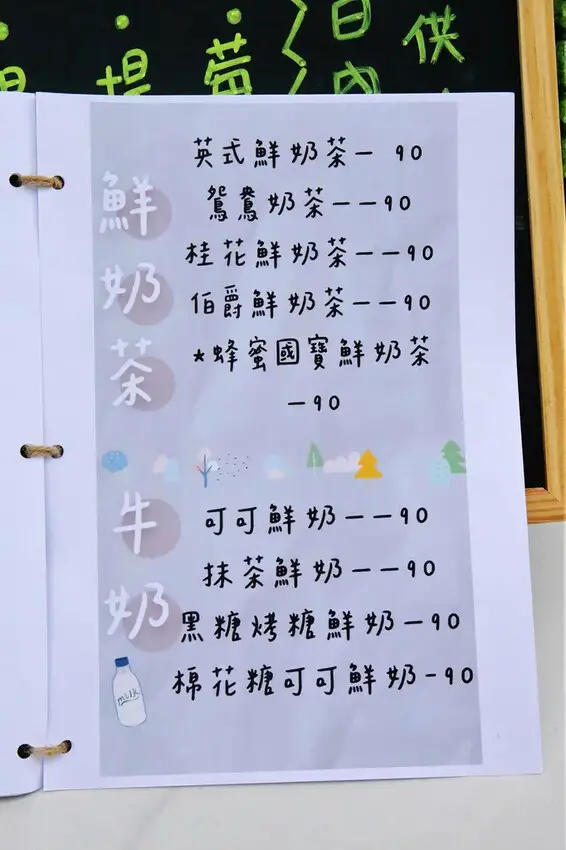 提莓
日內
供
鮮奶茶
英式鮮奶茶— 90
鴛鴦奶茶——90
桂花鮮奶茶——90
伯爵鮮奶茶——90
★蜂蜜國寶鮮奶茶
—90
牛奶
可可鮮奶——90
抹茶鮮奶——90
黑糖烤糖鮮奶—90
棉花糖可可鮮奶-90
MILK